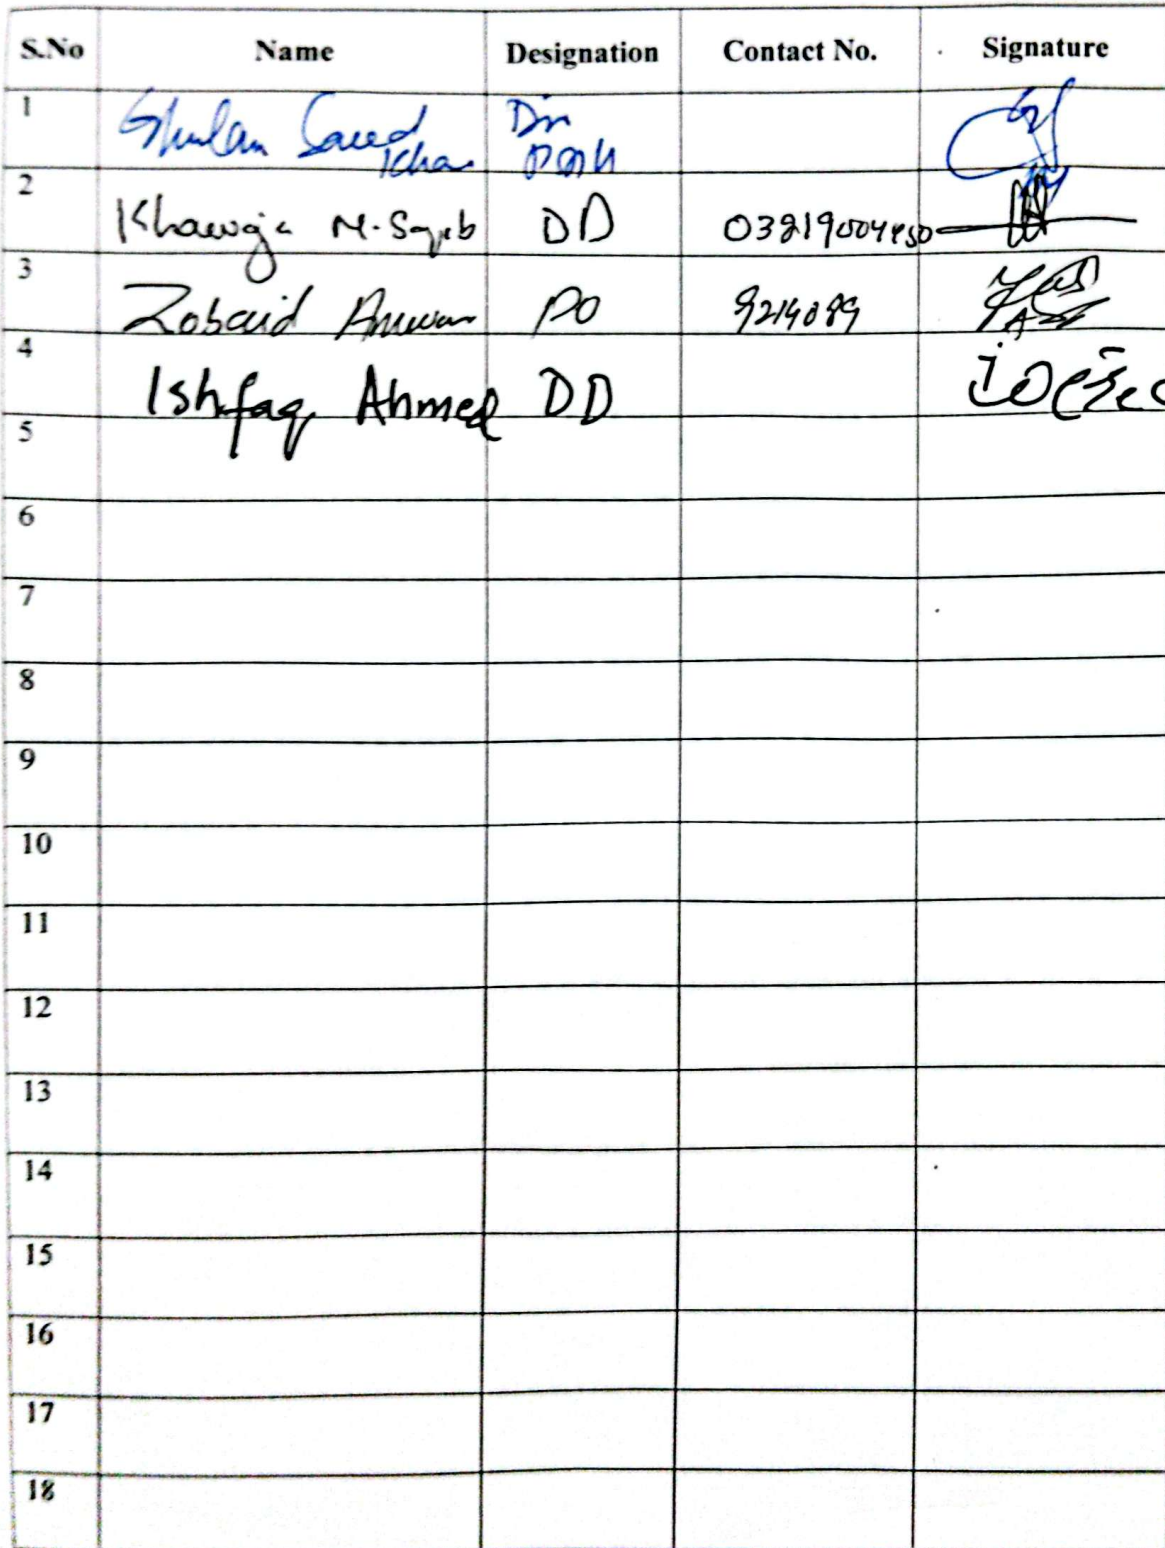 S.No Name Designation Contact No. Signature
1 Ghulam Saeed Khan Dir
2 Khawaja M. DD
3 Zobaid Anwar PO 9214089
4 Ishfaq Ahmed DD
5
6
7
8
9
10
11
12
13
14
15
16
17
18